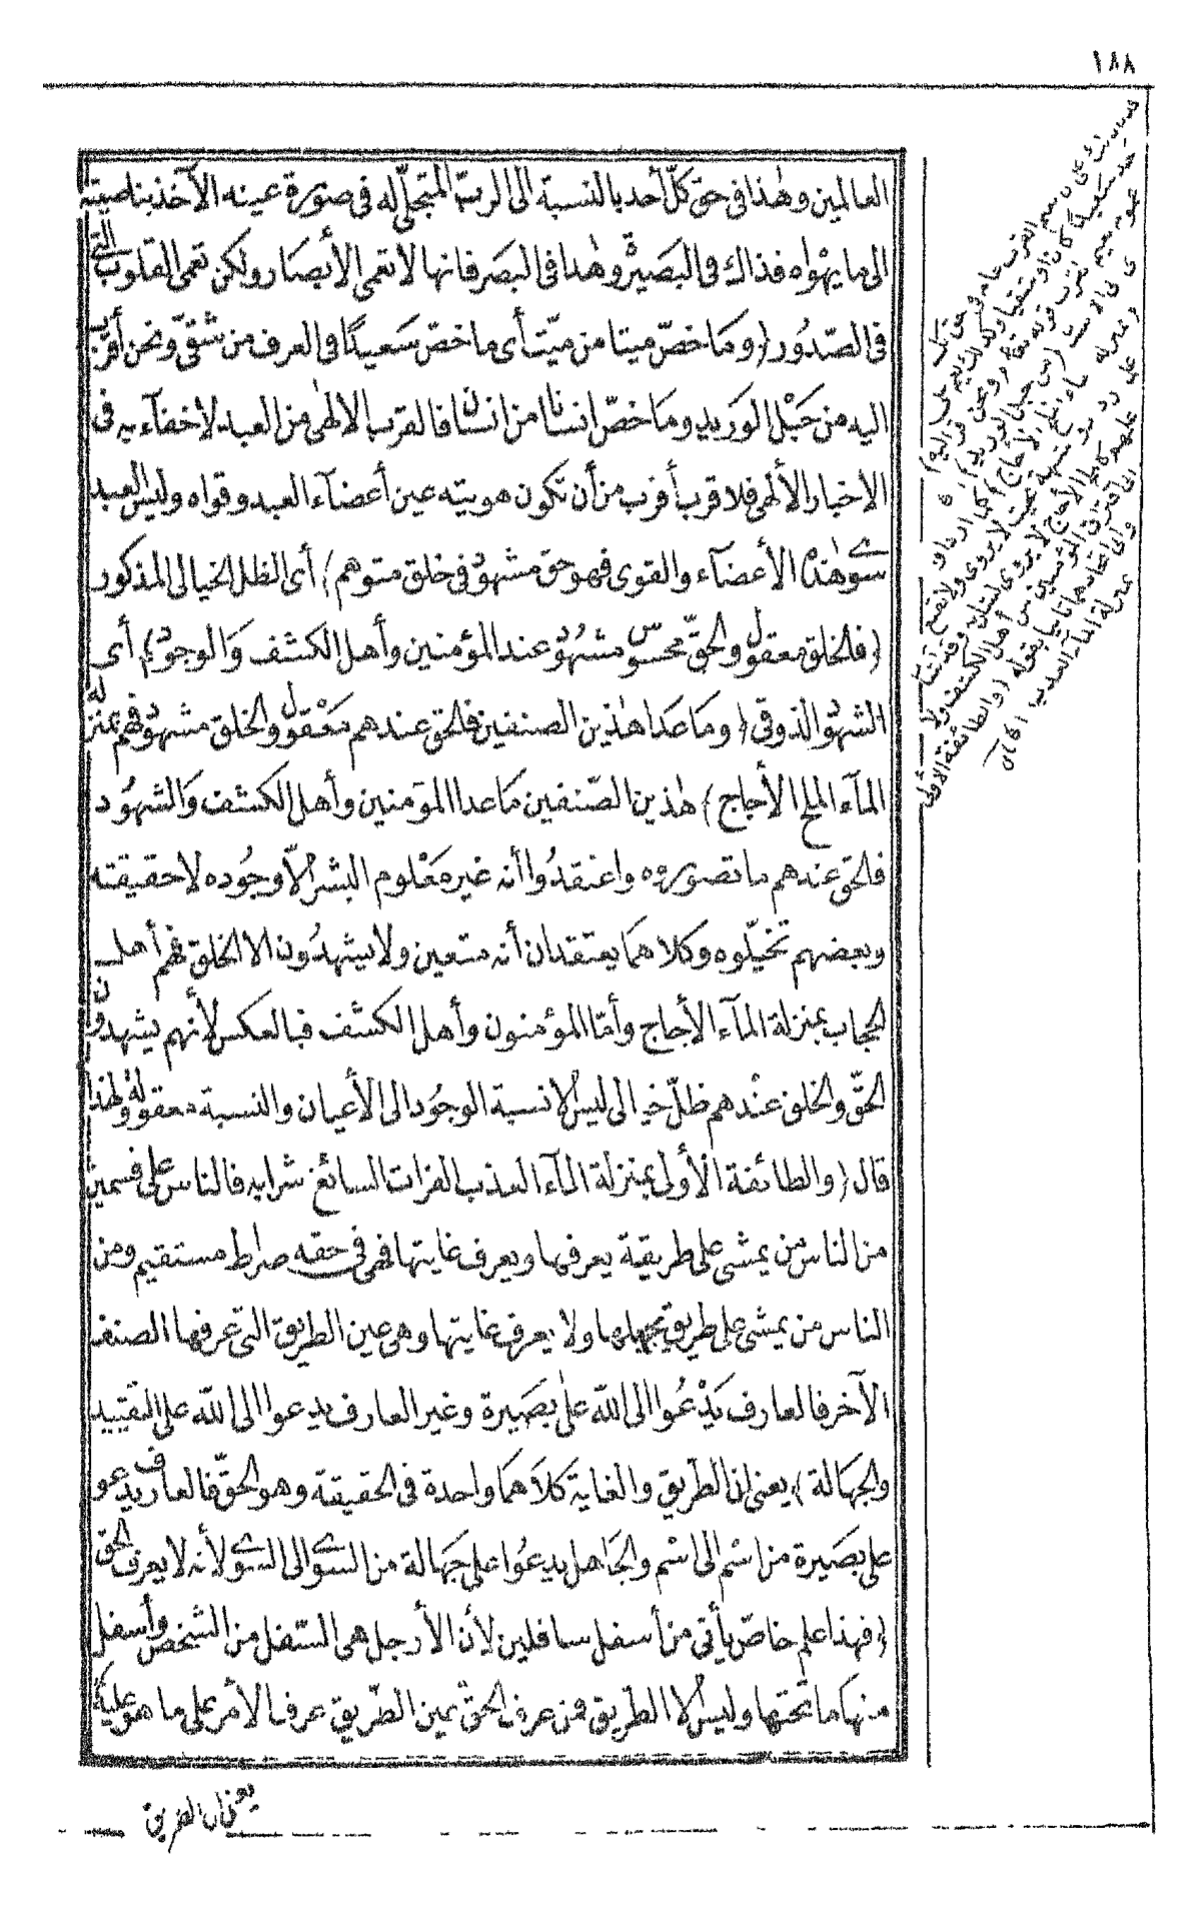 ١٨٨
العالمين وهذا فى حق كلّ أحد بالنسبة الى الربّ المتجلّى له فى صورة عينه الآخذ بناصيته
الى ما يهواه فذاك فى البصيرة وهذا فى البصر فانها لا تعمى الأبصار ولكن تعمى القلوب التى
فى الصّدور (وما خصّ ميتا من ميّت أى ما خصّ سعيدًا فى العرف من شقىّ ونحن أقرب
اليه من حَبْل الوَريد وما خصّ انسانا من انسان فالقرب الالهى من العبد لاخفآء به فى
الاخبار الألهى فلا قرب أقرب من أن تكون هويته عين أعضآء العبد وقواه وليس العبد
سوى هذه الأعضآء والقوى فهو حق مشهود فى خلق متوهم) أى الظل الخيالى المذكور
(فالخلق معقول والحقّ محسوس مشهُود عند المؤمنين وأهل الكشف وَالوجود) أى
الشهود الذوقى (وما عدا هذين الصنفين فالحق عندهم مَعْقول والخلق مشهود فهم بمنزلة
المآء الملح الأجاج) هذين الصّنفين ما عدا المؤمنين وأهل الكشف وَالشهُود
فالحق عندهم ما تصوروه واعتقدُوا أنه غير مَعْلوم البشر الّا وجُوده لا حقيقته
وبعضهم تخيّلوه وكلاهما يعتقدان أنه متعين ولا يشهدُون الا الخلق فهم أهل
الحجاب بمنزلة المآء الأجاج وأمّا المؤمنون وأهل الكشف فبالعكس لأنهم يشهدون
الحقّ والخلق عنْدهم ظلّ خيالى ليس الا نسبة الوجُود الى الأعيان والنسبة معقولة ولهذا
قال (والطائفة الأولى بمنزلة المآء العذب الفرات السائغ شرابه فالناس على قسمين
من الناس من يمشى على طريقة يعرفها ويعرف غايتها فهى فى حقه صراط مستقيم ومن
الناس من يمشى على طريق يجهلها ولا يعرف غايتها وهى عين الطريق التى عرفها الصنف
الآخر فالعارف يَدْعُوا الى الله على بصَيرة وغير العارف يدعوا الى الله على التقييد
والجهالة) يعنى ان الطّريق والغاية كلاَهما واحدة فى الحقيقة وهو الحقّ فالعارف يدعو
على بصَيرة من اسْم الى اسْم والجَاهل يدعُوا على جهالة من السوى الى السوى لأنه لا يعرف الحق
(فهذا علم خاصّ يأتى من أسفل سافلين لأن الأرجل هى السّفل من الشخص وأسفل
منها ما تحتها وليس الا الطّريق فمن عرف الحق عين الطّريق عرف الأمر على ما هو عليه)
يعنى ان الطريق